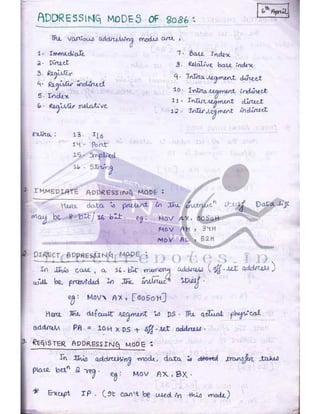 6th April
ADDRESSING MODES OF 8086 :
The various addressing modes are ,
1. Immediate
2. Direct
3. Register
4. Register indirect
5. Index
6. Register relative
7. Base Index
8. Relative base index
9. Intrasegment direct
10. Intrasegment indirect
11. Intersegment direct
12. Intersegment indirect
Extra : 13. I/o
14. Port
15. Implied
16. String
1. IMMEDIATE ADDRESSING MODE :
Here data is present in the instrucn itself Data size
may be 8-bit / 16-bit eg: MOV AX, 0050H
MOV AH, 34H
MOV AL, 52H
2. DIRECT ADDRESSING MODE :
In this case, a 16-bit memory address (off-set address)
will be provided in the instrucn itself.
eg: MOV AX, [0050H]
Here the default segment is DS. The actual physical
address PA = 10H x DS + off-set address.
3. REGISTER ADDRESSING MODE :
In this addressing mode, data transfer takes
place betn 2 reg. eg: MOV AX, BX.
* Except IP. (It can't be used in this mode)